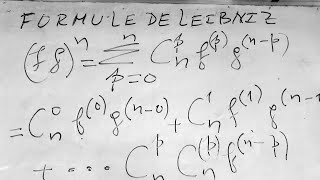 FORMULE DE LEIBNIZ
(fg)^n = \sum_{p=0}^{n} C_n^p f^{(p)} g^{(n-p)}
= C_n^0 f^{(0)} g^{(n-0)} + C_n^1 f^{(1)} g^{(n-1
+ .... C_n^p C_n^{(p)} f^{(n-p)}